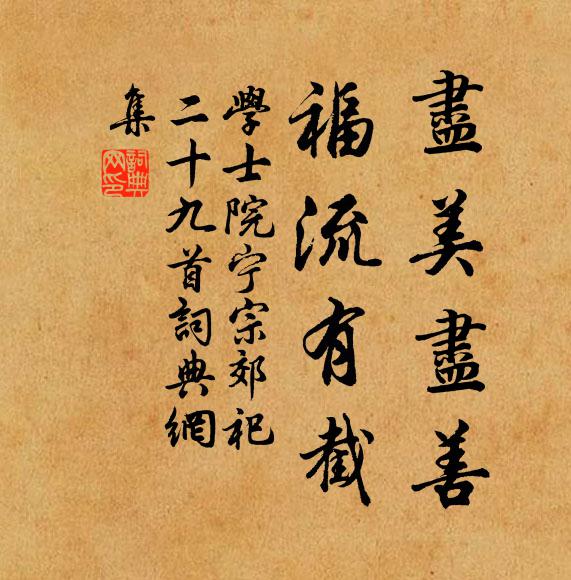 盡美盡善
福流有截
學士院宁宗郊祀
二十九首詞典網
集
詞典網印